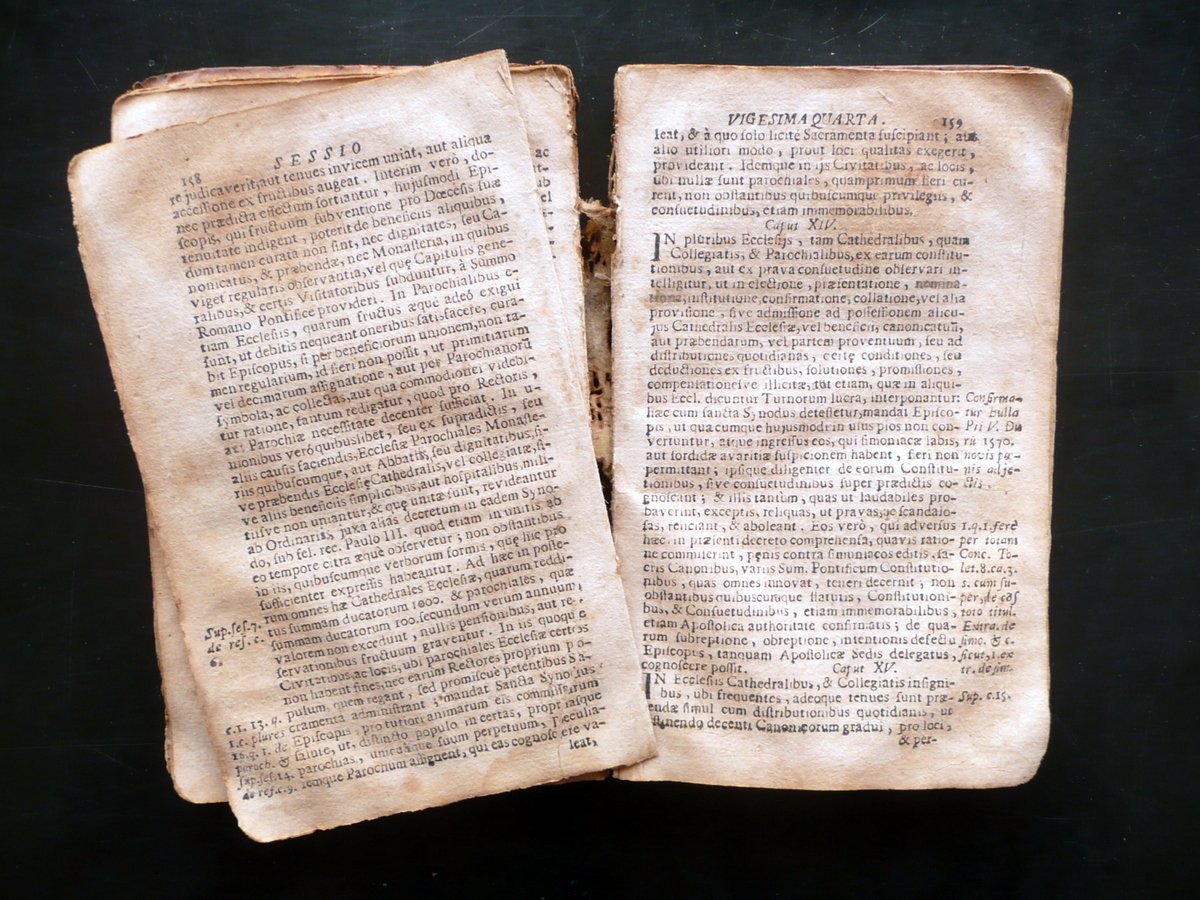 158
SESSIO
re judicaverit, aut tenues invicem uniat, aut aliqua
accessione ex fructibus augeat. Interim verò, do-
nec prædicta effectum sortiantur, hujusmodi Epi-
scopis, qui fructuum subventione pro Diœcesis suæ
tenuitate indigent, poterit de beneficiis aliquibus,
dum tamen curata non sint, nec dignitates, seu Ca-
nonicatus, & præbendæ, nec Monasteria, in quibus
viget regularis observantia, vel quę Capitulis gene-
ralibus, & certis Visitatoribus subduntur, à Summo
Romano Pontifice provideri. In Parochialibus e-
tiam Ecclesiis, quarum fructus æque adeò exigui
sunt, ut debitis nequeant oneribus satisfacere, cura-
bit Episcopus, si per beneficiorum unionem, non ta-
men regularium, id fieri non possit, ut primitiarum
vel decimarum assignatione, aut per Parochianorũ
symbola, ac collectas, aut qua commodiori videbi-
tur ratione, tantum redigatur, quod pro Rectoris,
ac Parochiæ necessitate decenter sufficiat. In u-
nionibus verò quibuslibet, seu ex supradictis, seu
aliis causis faciendis, Ecclesiæ Parochiales Monaste-
riis quibuscumque, aut Abbatiis, seu dignitatibus, si-
ve præbendis Ecclesię Cathedralis, vel collegiatæ, si-
ve aliis beneficiis simplicibus, aut hospitalibus, mili-
tiisve non uniantur, & quę unitæ sunt, revideantur
ab Ordinariis, juxta alias decretum in eadem Syno-
do, sub fel. rec. Paulo III. quod etiam in unitis ab
eo tempore citra æque observetur; non obstantibus
in iis, quibuscumque verborum formis, quę hîc pro
sufficienter expressis habeantur. Ad hæc in poste-
rum omnes hæ Cathedrales Ecclesiæ, quarum reddi-
tus summam ducatorum 1000. & parochiales, quæ
summam ducatorum 100. secundum verum annuum
valorem non excedunt, nullis pensionibus, aut re-
servationibus fructuum graventur. In iis quoque
Civitatibus, ac locis, ubi parochiales Ecclesiæ certos
non habent fines, nec earum Rectores proprium po-
pulum, quem regant, sed promiscue petentibus Sa-
cramenta administrant; mandat Sancta Synodus
Episcopis, pro tutiori animarum eis commissarum
salute, ut, distincto populo in certas, propriasque
parochias, unicuique suum perpetuum, peculia-
remque Parochum assignent, qui eas cognoscere va-
leat,
Sup. ses. 7.
de ref. c.
6.
c.1. 13. q.
1. c. plures
16. q. 1. de
paroch. &
sup. ses. 14.
de ref. c. 9.
VIGESIMA QUARTA. 159
leat, & à quo solo licitè Sacramenta suscipiant; aut
alio utiliori modo, prout loci qualitas exegerit,
provideant. Idemque in ijs Civitatibus, ac locis,
ubi nullæ sunt parochiales, quamprimum fieri cu-
rent, non obstantibus quibuscumque privilegiis, &
consuetudinibus, etiam immemorabilibus.
Caput XIV.
IN pluribus Ecclesijs, tam Cathedralibus, quam
Collegiatis, & Parochialibus, ex earum constitu-
tionibus, aut ex prava consuetudine observari in-
telligitur, ut in electione, præsentatione, nomina-
tione, institutione, confirmatione, collatione, vel alia
provisione, sive admissione ad possessionem alicu-
jus Cathedralis Ecclesiæ, vel beneficii, canonicatuũ,
aut præbendarum, vel partem proventuum, seu ad
distributiones quotidianas, certę conditiones, seu
deductiones ex fructibus, solutiones, promissiones,
compensationesive illicitæ, aut etiam, quæ in aliqui-
bus Eccl. dicuntur Turnorum lucra, interponantur:
hæc cum sancta Synodus detestetur, mandat Episco-
pis, ut quacumque hujusmodi in usus pios non con-
vertuntur, atque ingressus eos, qui simoniacæ labis,
aut sordidæ avaritiæ suspicionem habent, fieri non
permittant; ipsique diligenter de eorum Constitu-
tionibus, sive consuetudinibus super prædictis co-
gnoscant; & illis tantum, quas ut laudabiles pro-
baverint, exceptis, reliquas, ut pravas, ac scandalo-
sas, reiiciant, & aboleant. Eos verò, qui adversus
hæc in præsenti decreto comprehensa, quavis ratio-
ne commiserint, pœnis contra simoniacos editis, sa-
cris Canonibus, variis Sum. Pontificum Constitutio-
nibus, quas omnes innovat, teneri decernit; non
obstantibus quibuscumque statutis, Constitutioni-
bus, & Consuetudinibus, etiam immemorabilibus,
etiam Apostolica authoritate confirmatis; de qua-
rum subreptione, obreptione, intentionis defectu
Episcopus, tanquam Apostolicæ Sedis delegatus,
cognoscere possit.
Caput XV.
IN Ecclesiis Cathedralibus, & Collegiatis insigni-
bus, ubi frequentes, adeoque tenues sunt præ-
bendæ simul cum distributionibus quotidianis, ut
sustinendo decenti Canonicorum gradui, pro loci,
& per-
Confirma-
tur Bulla
Pii V. Dat
1570.
novis pœ-
nis adje-
ctis.
1.q.1. ferè
per totam
Conc. To-
let. 8. ca. 3.
s. cum su-
per, de cõs
toto titul.
Extra. de
simo. & c.
sicut, 1. ex
tr. de sim.
Sup. c. 15.